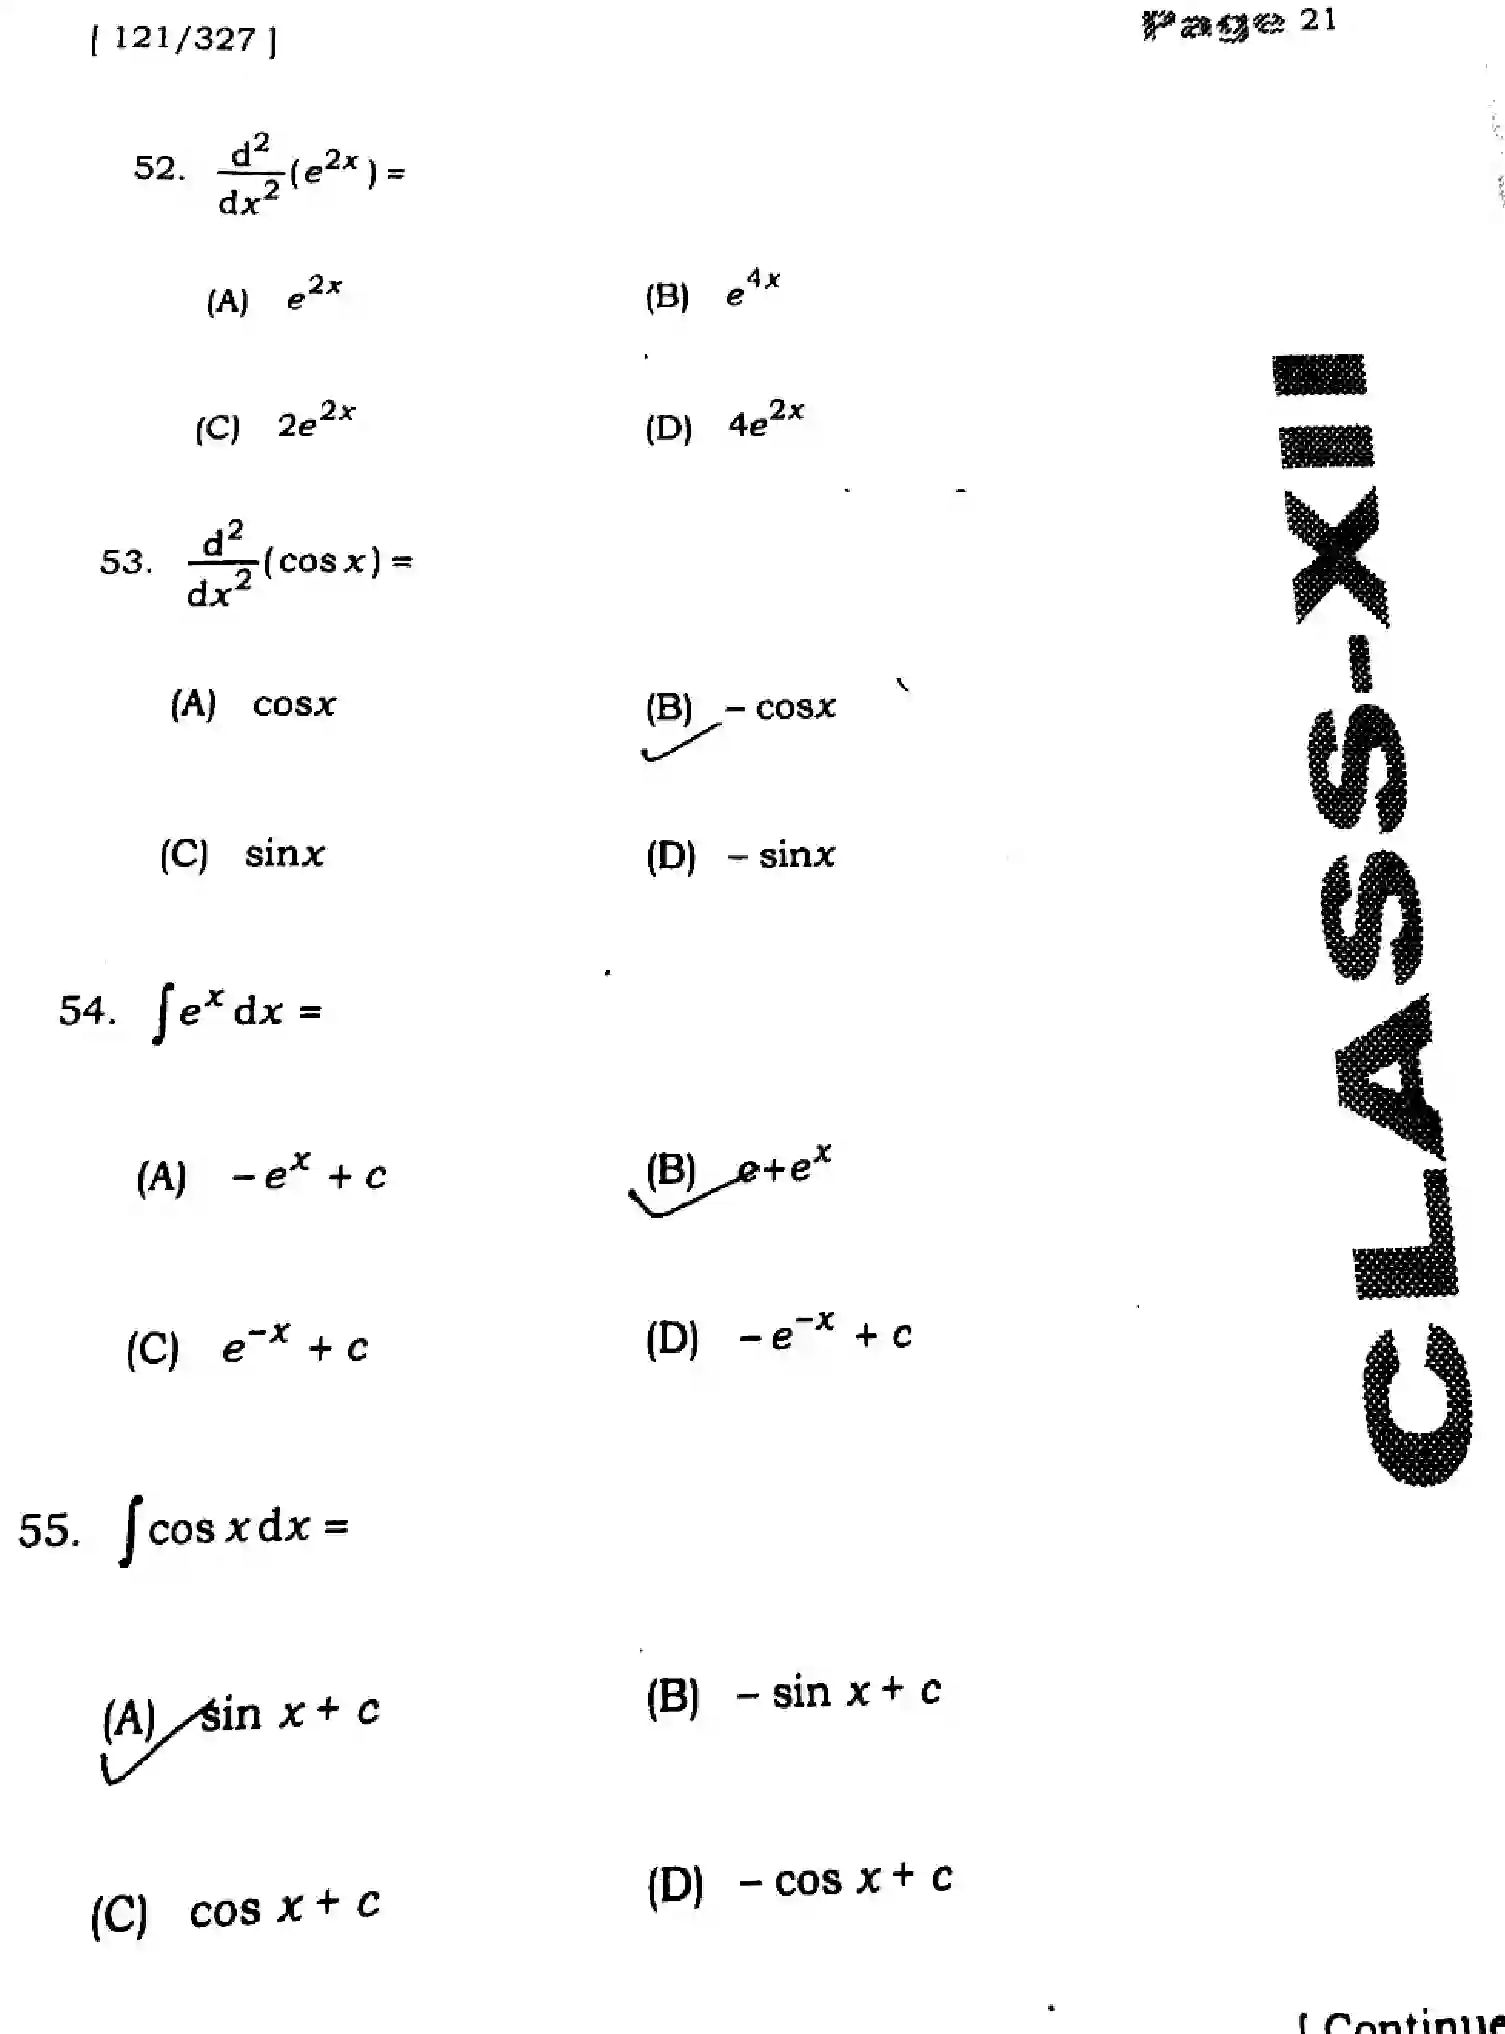 [ 121/327 ] Page 21
52. d²/dx² (e^{2x}) =
(A) e^{2x} (B) e^{4x}
(C) 2e^{2x} (D) 4e^{2x}
53. d²/dx² (cos x) =
(A) cosx (B) – cosx
(C) sinx (D) – sinx
54. ∫ e^x dx =
(A) – e^x + c (B) c+e^x
(C) e^{–x} + c (D) – e^{–x} + c
55. ∫ cos x dx =
(A) sin x + c (B) – sin x + c
(C) cos x + c (D) – cos x + c
CLASS-XII
[ Continue